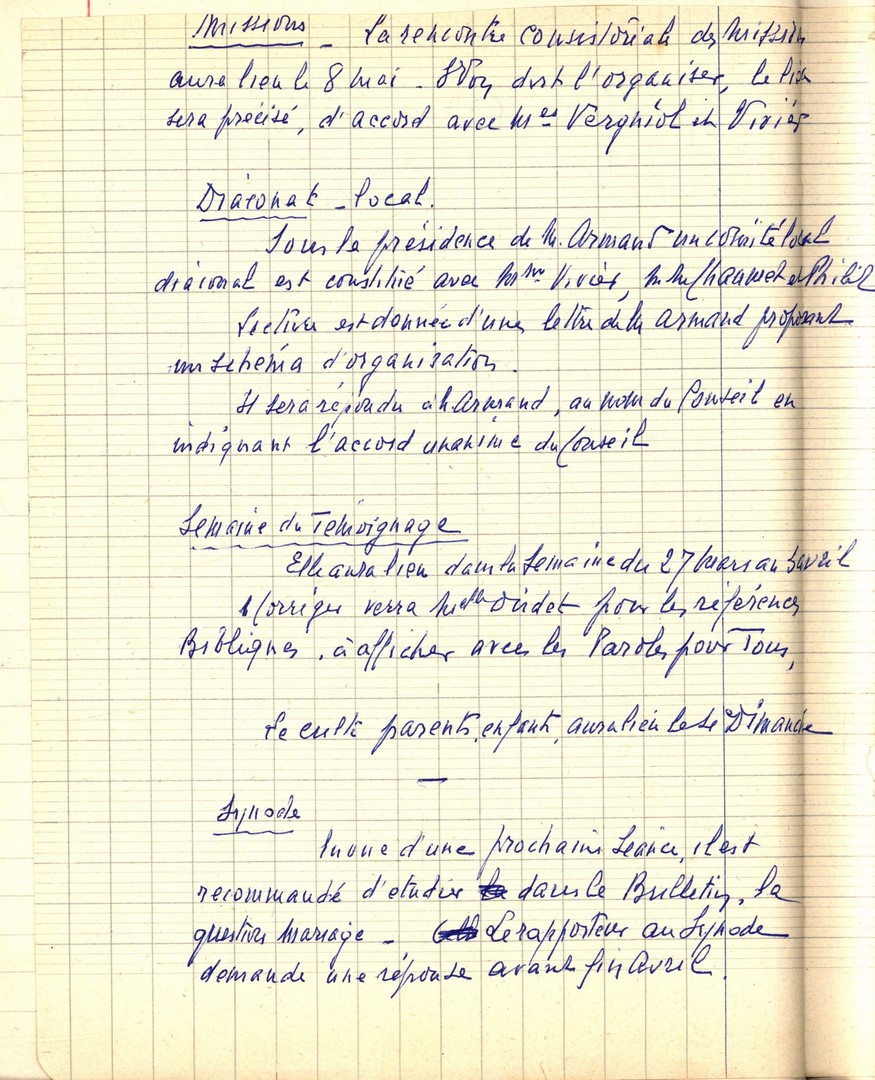 Missions _ La rencontre consistoriale des Missions
aura lieu le 8 mai _ doit l'organiser, le lieu
sera précisé, d'accord avec Mes Vergniol et Vivièr
Diaconat _ local.
Sous la présidence de M. Armand un comité local
diaconal est constitué avec Mme Vivièr, M M Chaumet et
Lecture est donnée d'une lettre de M Armand proposant
un schéma d'organisation.
Il sera répondu à M Armand, au nom du Conseil en
indiquant l'accord unanime du Conseil
Semaine du Témoignage
Elle aura lieu dans la semaine du 27 Mars au 3 avril
verra Melle pour les références
Bibliques, à afficher avec les Paroles pour Tous,
Le culte parents, enfants, aura lieu le 2e Dimanche
—
Synode
En vue d'une prochaine séance, il est
recommandé d'étudier dans le Bulletin, la
question Mariage _ Le rapporteur au Synode
demande une réponse avant fin Avril.